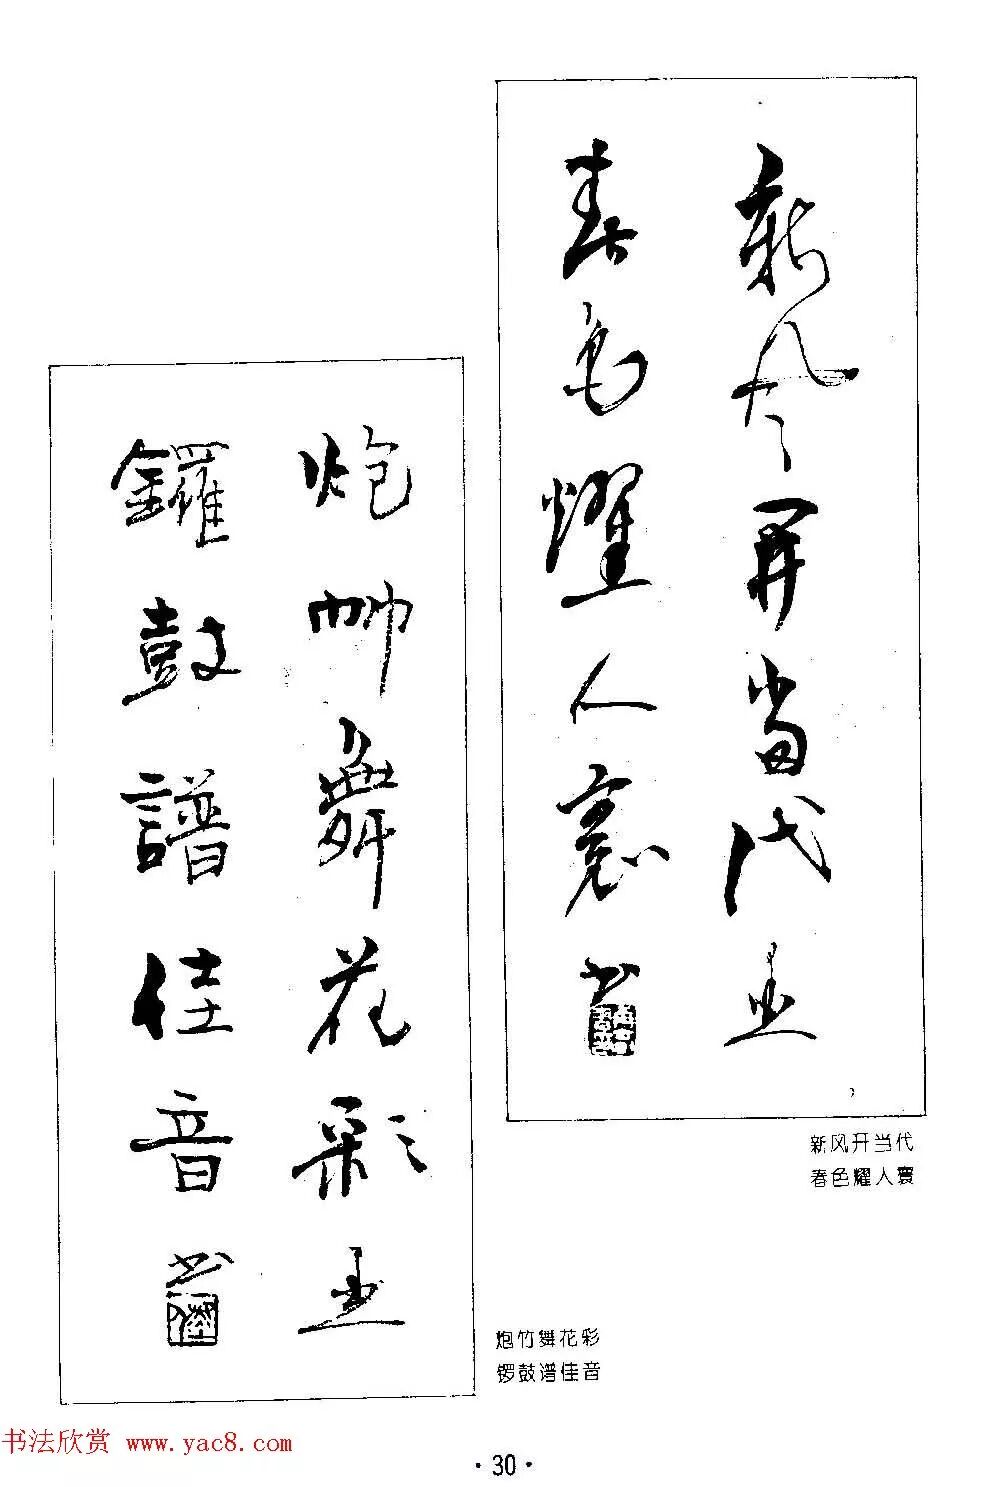 新风開当代
春色耀人寰
新风开当代
春色耀人寰
炮竹舞花彩
鑼鼓譜佳音
炮竹舞花彩
锣鼓谱佳音
书法欣赏 www.yac8.com
·30·